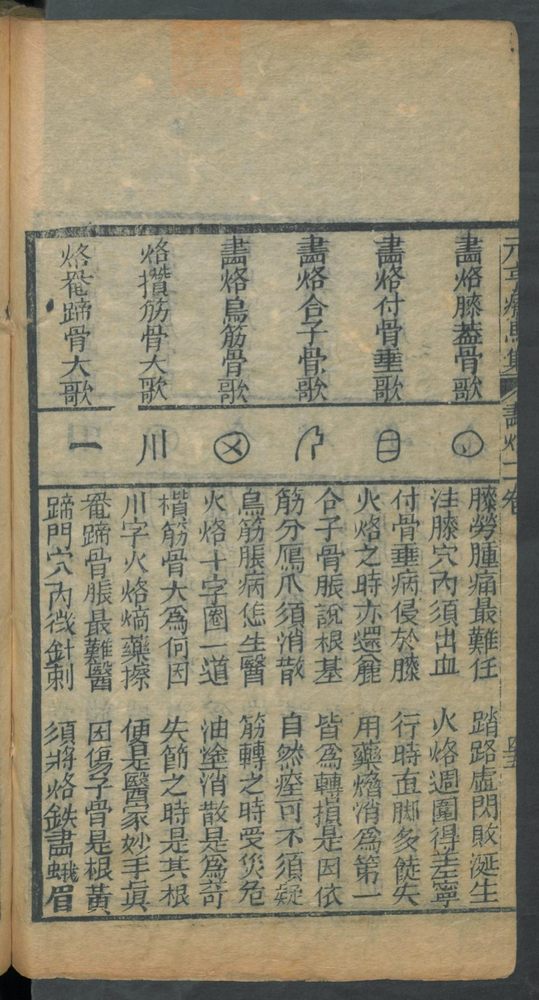 元亨療馬集 畫烙二卷 四五
畫烙膝蓋骨歌
膝勞腫痛最難任 踏路虛閃敗涎生
注膝穴內須出血 火烙週圍得差寧
畫烙付骨垂歌
付骨垂病侵於膝 行時直脚多䠀失
火烙之時亦還麄 用藥消為第一
畫烙合子骨歌
合子骨脹說根基 皆為轉損是因依
筋分鴈爪須消散 自然痊可不須疑
畫烙烏筋骨歌
烏筋脹病恁生醫 筋轉之時受災危
火烙十字圈一道 油塗消散是為奇
烙攢筋骨大歌 川
攢筋骨大為何因 失節之時是其根
川字火烙熵藥擦 便是醫家妙手真
烙蹄骨大歌 一
蹄骨脹最難醫 因傷子骨是根黃
蹄門穴內微針刺 須將烙鉄畫蛾眉